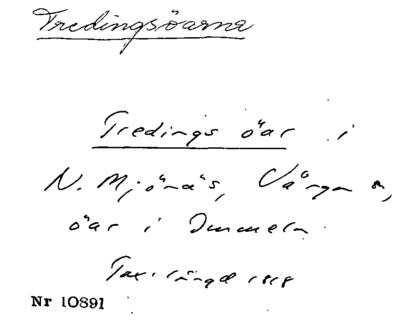 Tredingsöarna
Tredings öar i
N. Mjönäs, Vånga s,
öar i Immeln.
Tax. längd 1818
Nr 10891